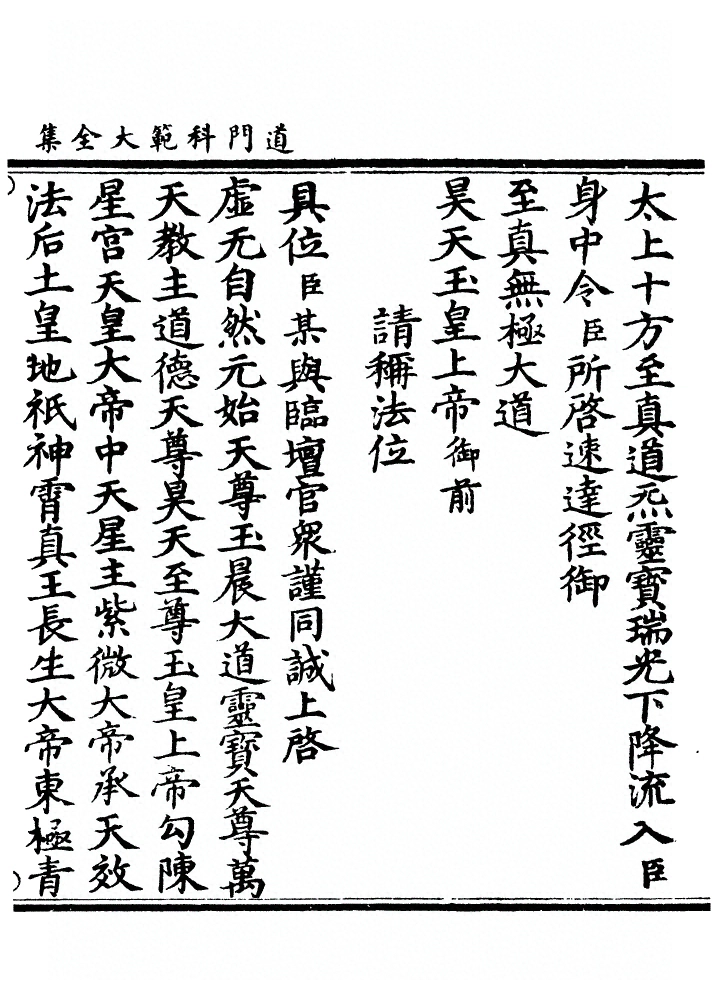 道門科範大全集
太上十方至真道炁靈寶瑞光下降流入臣
身中令臣所啓速達徑御
至真無極大道
昊天玉皇上帝御前
請稱法位
具位臣某與臨壇官衆謹同誠上啓
虛无自然元始天尊玉晨大道靈寶天尊萬
天教主道德天尊昊天至尊玉皇上帝勾陳
星宮天皇大帝中天星主紫微大帝承天效
法后土皇地祇神霄真王長生大帝東極青